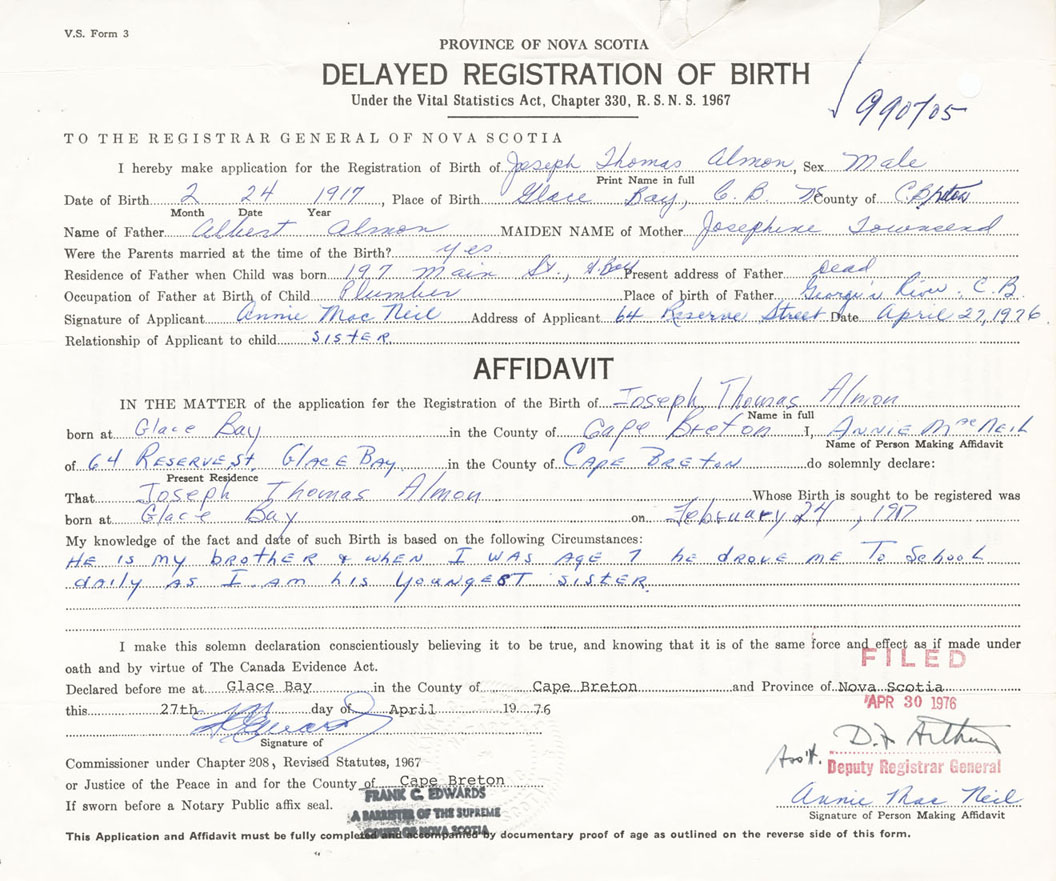 V.S. Form 3
PROVINCE OF NOVA SCOTIA
DELAYED REGISTRATION OF BIRTH
Under the Vital Statistics Act, Chapter 330, R. S. N. S. 1967
990705
TO THE REGISTRAR GENERAL OF NOVA SCOTIA
I hereby make application for the Registration of Birth of Joseph Thomas Almon, Sex Male
Print Name in full
Date of Birth 2 24 1917, Place of Birth Glace Bay, C. B County of C. Breton
Month Date Year
Name of Father Albert Almon MAIDEN NAME of Mother Josephine Townsend
Were the Parents married at the time of the Birth? yes
Residence of Father when Child was born 197 Main St., G. Bay Present address of Father Dead
Occupation of Father at Birth of Child Plumber Place of birth of Father George's River. C. B.
Signature of Applicant Annie Mac Neil Address of Applicant 64 Reserve Street Date April 27, 1976
Relationship of Applicant to child SISTER
AFFIDAVIT
IN THE MATTER of the application for the Registration of the Birth of Joseph Thomas Almon
Name in full
born at Glace Bay in the County of Cape Breton I, ANNIE MacNEIL
Name of Person Making Affidavit
of 64 RESERVE St. GLACE BAY in the County of CAPE BRETON do solemnly declare:
Present Residence
That Joseph Thomas Almon Whose Birth is sought to be registered was
born at Glace Bay on February 24, 1917
My knowledge of the fact and date of such Birth is based on the following Circumstances:
HE IS MY brother & WHEN I WAS AGE 7 he drove me To School
daily AS I AM his YOUNGEST SISTER.
I make this solemn declaration conscientiously believing it to be true, and knowing that it is of the same force and effect as if made under
oath and by virtue of The Canada Evidence Act.
FILED
Declared before me at Glace Bay in the County of Cape Breton and Province of Nova Scotia
APR 30 1976
this 27th day of April 19 76
Signature of
Commissioner under Chapter 208, Revised Statutes, 1967
Ass't. Deputy Registrar General
or Justice of the Peace in and for the County of Cape Breton
FRANK C. EDWARDS
Annie Mac Neil
If sworn before a Notary Public affix seal.
A BARRISTER OF THE SUPREME
Signature of Person Making Affidavit
COURT OF NOVA SCOTIA
This Application and Affidavit must be fully completed and accompanied by documentary proof of age as outlined on the reverse side of this form.